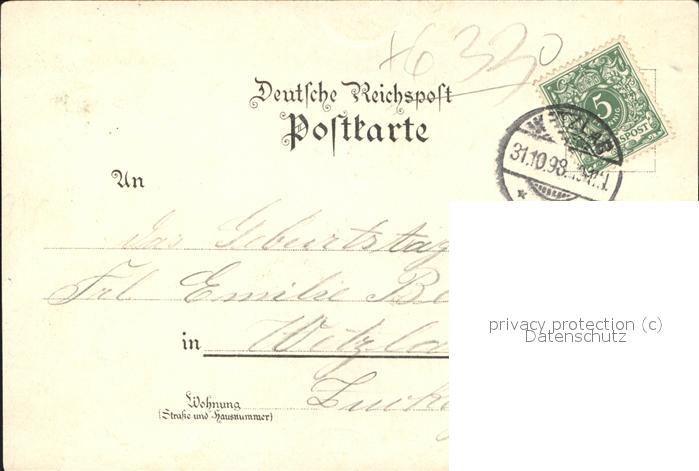 +6 330
Deutsche Reichspost
Postkarte
5
WETZLAR
31.10.98.
An
Das Geburtstag
Frl Emilie Be
in Wetzla
Wohnung
(Straße und Hausnummer)
privacy protection (c)
Datenschutz